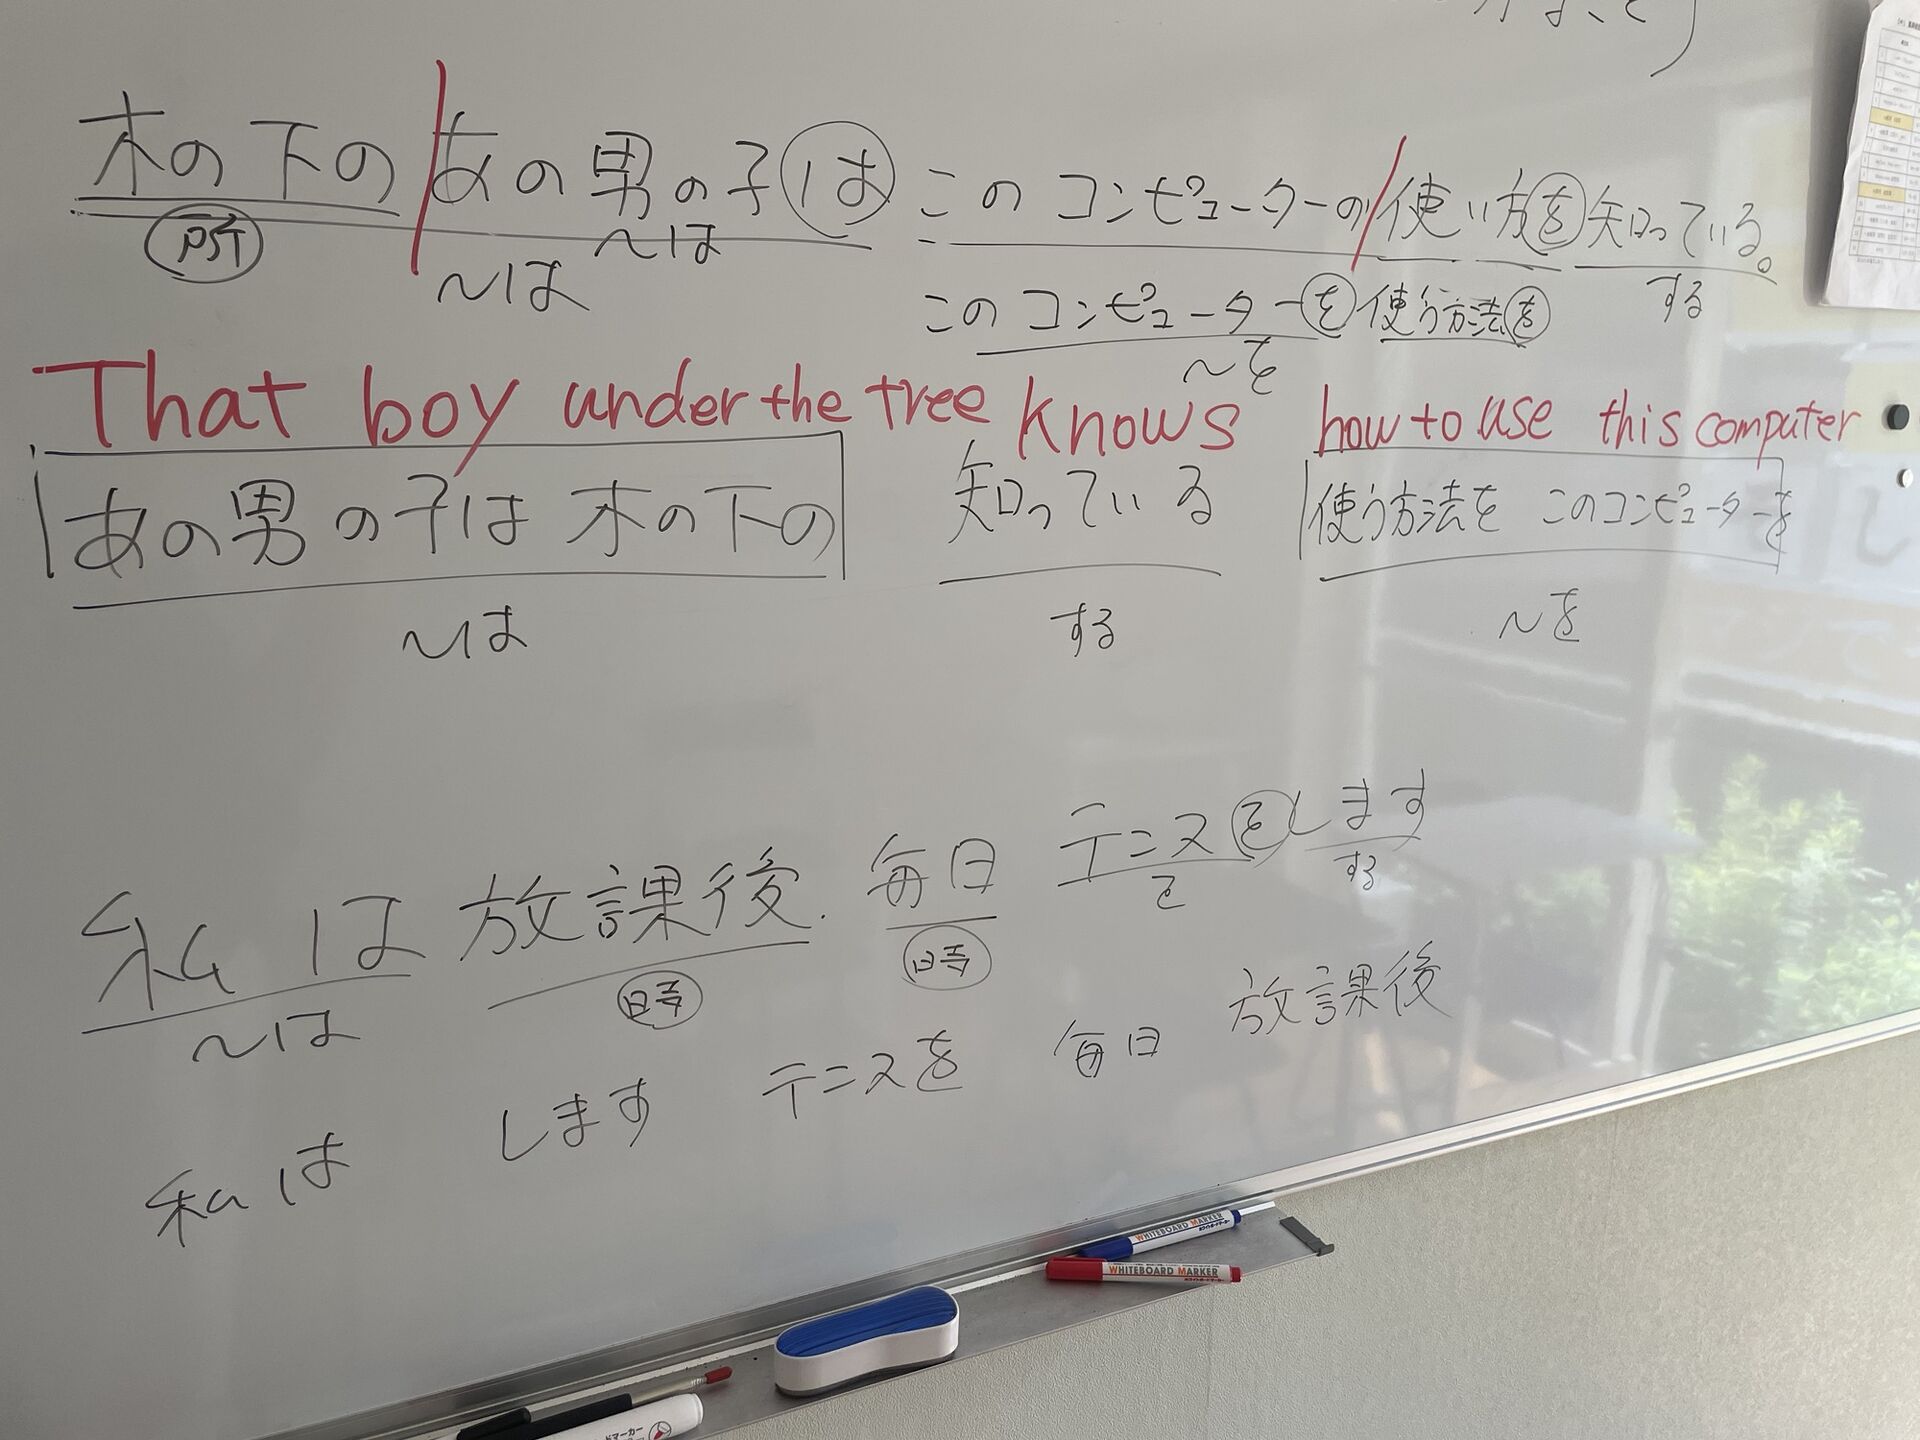 木の下のあの男の子は このコンピューターの使い方を知っている。
所 〜は 〜は する
このコンピューターを使う方法を
〜を
That boy under the tree knows how to use this computer
あの男の子は 木の下の 知っている 使う方法を このコンピューターを
〜は する 〜を
私は 放課後 毎日 テニスをします
〜は 時 時 を する
私は します テニスを 毎日 放課後
WHITEBOARD MARKER
WHITEBOARD MARKER